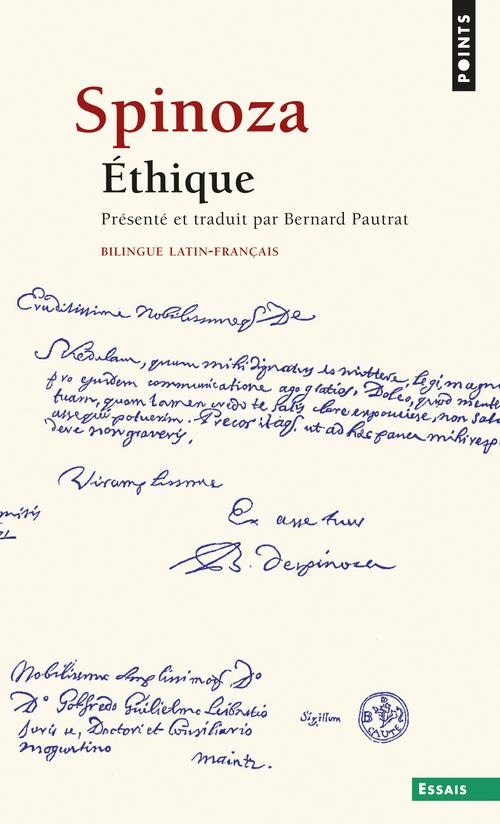 POINTS
Spinoza
Éthique
Présenté et traduit par Bernard Pautrat
BILINGUE LATIN-FRANÇAIS
Eruditissime Nobilissimeq De
Schedulam, quam mihi dignatus es mittere, legi, magn
pro ejusdem communicatione ago gratias, Doleo, quod mente
tuam, quam tamen credo te satis clare exposuisse, non sat
assequi potuerim. Precor itaq. ut ad hæc pauca mihi resp
deve non graveris,
Vir amplissime
Ex asse tuus
B. despinoza
Nobilissimo Amplissimoq Do
Do Gotfredo Guilielmo Leibnitio
Juris u, Doctori et Consiliario
Moguntino
maintz.
Sigillum
B D S
CAUTE
ESSAIS